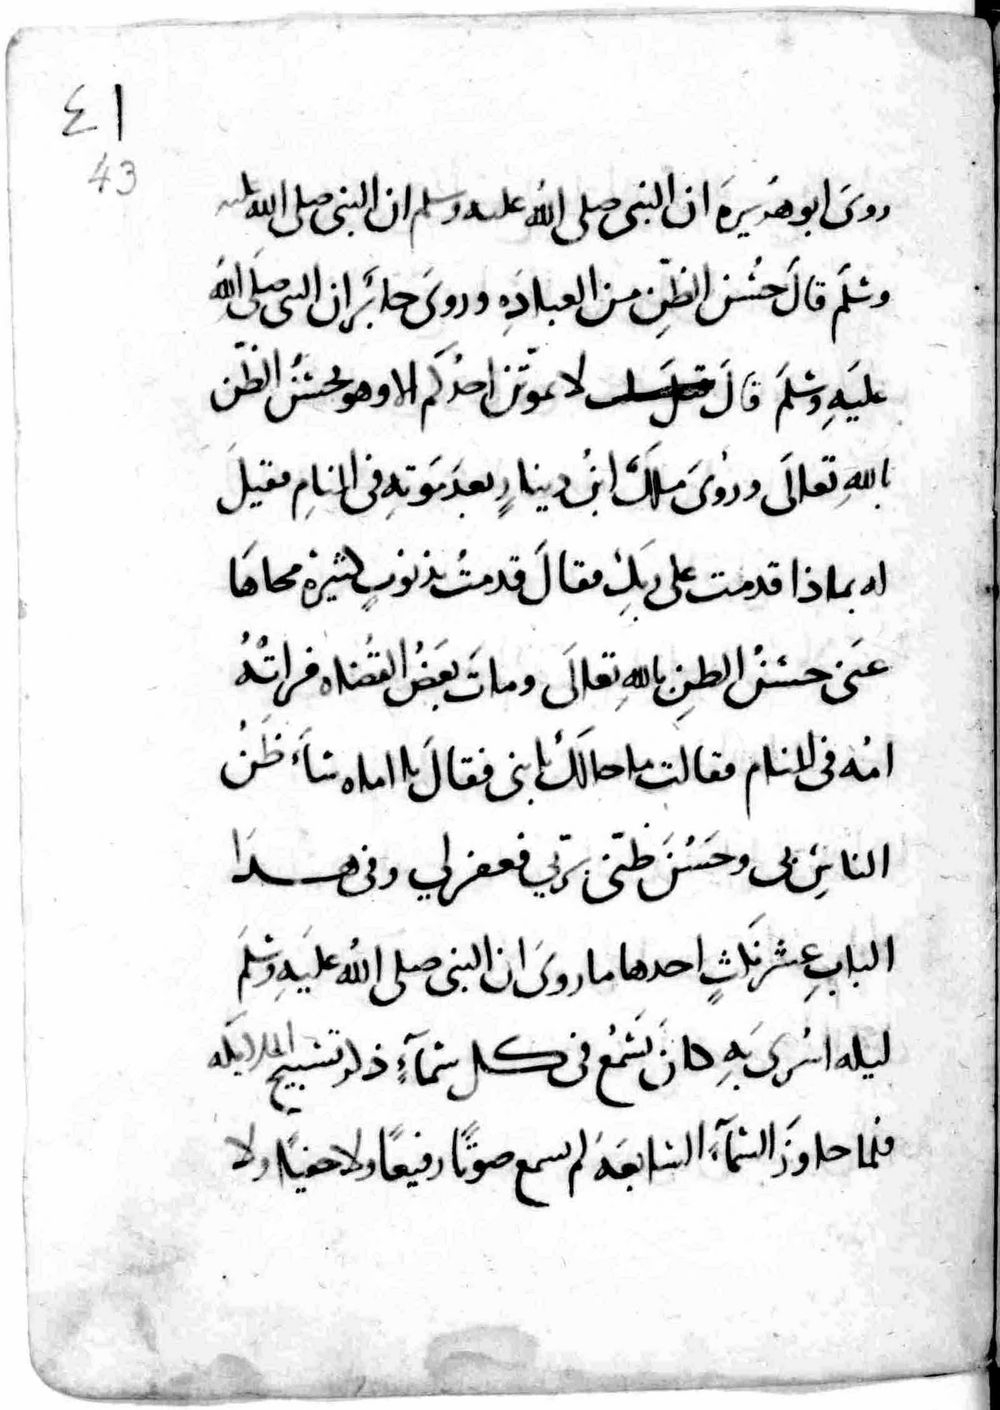 ٤١
43
روىَ ابو هُريرَه ان النبى صلى اللهُ عليه وسلم ان النبى صلى الله عليه
وسَلَم قالَ حُسْن الظّنِ من العبادَهِ وروىَ جابَر ان النبى صلَى اللهُ
عليَهِ وسَلمَ قالَ لا يموتّن احدُكم الا وهو يحسْنُ الظّن
باللهِ تعالَى وروْىَ مَلكُ ابنُ دينارٍ بعدَ مَوتهِ فى المنامِ فقيلَ
له بماذا قدمت على ربَكِ فقالَ قدمتُ بذنوبٍ كثيرة محاهَا
عَنى حسْنُ الظنِ باللهِ تعالَى وماتَ بعَضُ القُضاه فراتْهُ
امُه فى المنام فقالت ما حالكَ يا بنى فقالَ يا اماه سَاءَ ظَنُ
الناسِ بى وحَسُنَ ظنّى بربّي فغفر لي وفى هـــذَا
البابِ عِشر نكَثٍ احدها ما روىَ ان النبى صلى اللهُ عليَهِ وسَلمَ
ليله اسُرىَ بَهِ كانَ يَسْمعُ فى كل سَمآءٍ ذلو تسَبيح الملايَكه
فلما جاوزَ السَمآءَ السَابعَهُ لم يسمع صوتًا رفيعًا ولا خفيًا ولا